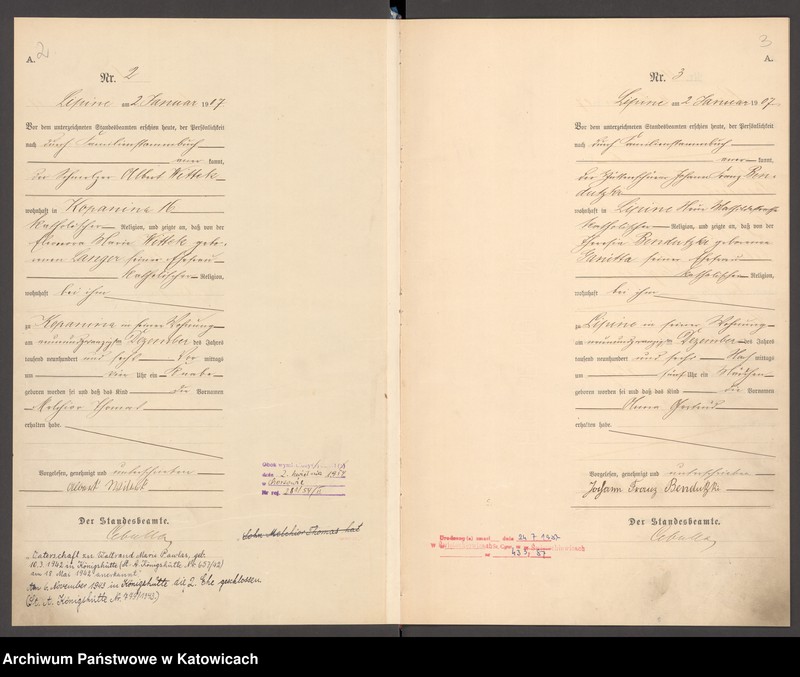 2
A.
Nr. 2
Lipine am 2 Januar 1907
Vor dem unterzeichneten Standesbeamten erschien heute, der Persönlichkeit
nach durch Familienstammbuch
kannt,
der Schmelzer Albert Wittek
wohnhaft in Kopanina
Katholischer Religion, und zeigte an, daß von der
Eleonora Marie Wittek gebo-
renen Langer seiner Ehefrau
Katholischer Religion,
wohnhaft bei ihm
zu Kopanina in seiner Wohnung
am neunundzwanzigsten Dezember des Jahres
tausend neunhundert und sechs Vor mittags
um Uhr ein Knabe
geboren worden sei und daß das Kind die Vornamen
Melchior Thomas
erhalten habe.
Vorgelesen, genehmigt und unterschrieben
Albert Wittek
Der Standesbeamte.
Cebulla
Vaterschaft zur Waltraud Maria Pawlar, geb.
1942 in Königshütte (St. A. Königshütte Nr. 657/42)
am 18 Mai 1942 anerkannt.
Am 6. November 1943 in Königshütte die 2. Ehe geschlossen
(St. A. Königshütte Nr. 793/1943.)
dnia 2. kwietnia 1954
w Chorzowie
Nr rej. 281/54/II
John Melchior Thomas hat
3
A.
Nr. 3
Lipine am 2 Januar 1907
Vor dem unterzeichneten Standesbeamten erschien heute, der Persönlichkeit
nach durch Familienstammbuch
kannt,
der Johann Franz Ben-
dutzki
wohnhaft in Lipine
Katholischer Religion, und zeigte an, daß von der
Theresia Bendutzki geborenen
seiner Ehefrau
Katholischer Religion,
wohnhaft bei ihm
zu Lipine in seiner Wohnung
am neunundzwanzigsten Dezember des Jahres
tausend neunhundert und sechs Nach mittags
um fünf Uhr ein Mädchen
geboren worden sei und daß das Kind die Vornamen
Anna Gertrud
erhalten habe.
Vorgelesen, genehmigt und unterschrieben
Johann Franz Bendutzki
Der Standesbeamte.
Cebulla
Urodzony (a) zmarł dnia 24.7.1987
Archiwum Państwowe w Katowicach